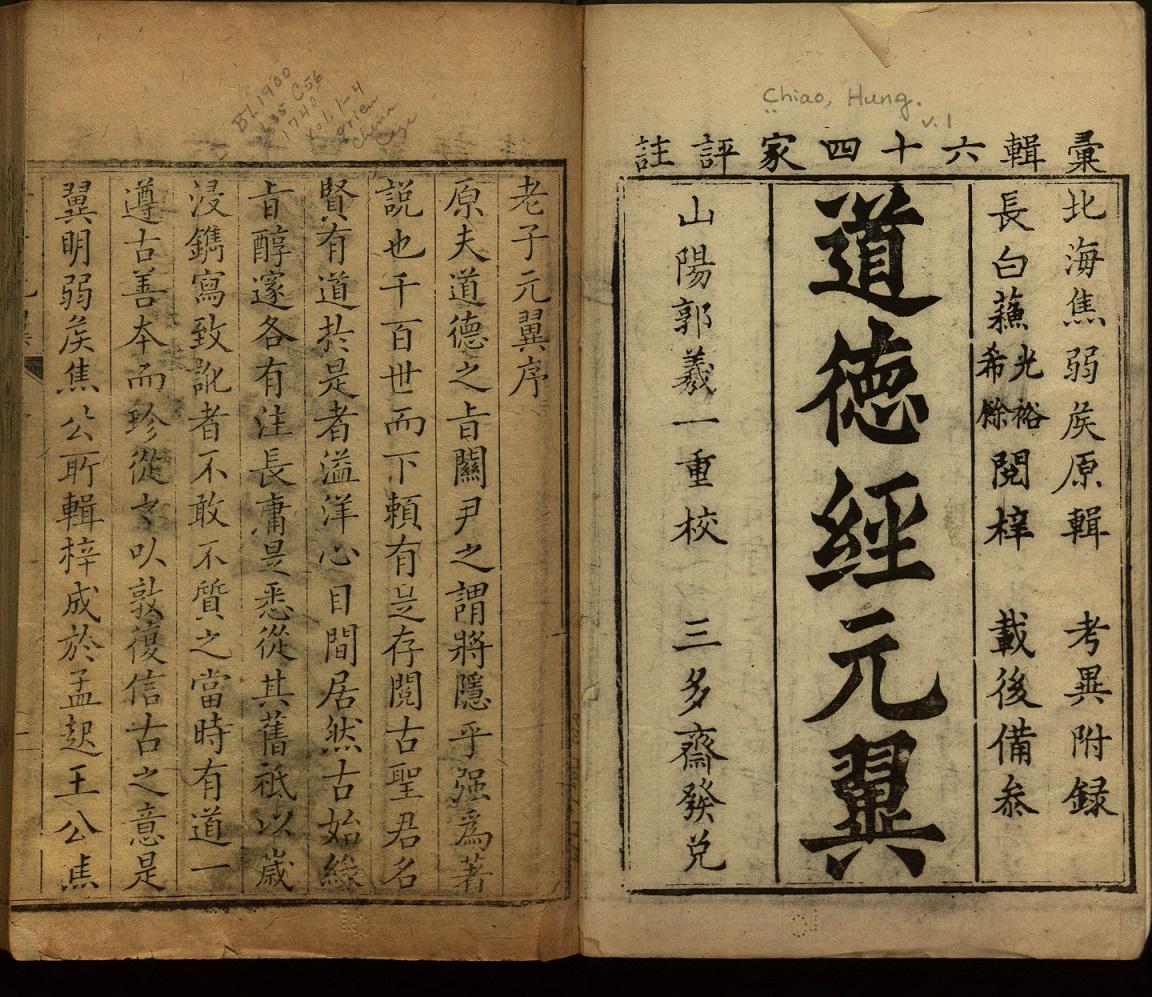 彚輯六十四家評註
北海焦弱矦原輯 考異附録
長白蘓光裕希餘閱梓 載後備叅
道德經元翼
山陽郭羲一重校 三多齋發兌
Chiao, Hung.
v.1
BL1900
C56
1740
vol. 1-4
orien
Chinese
老子元翼序
原夫道德之旨關尹之謂將隱乎强爲著
説也千百世而下賴有是存閱古聖君名
賢有道於是者溢洋心目間居然古始緣
旨醇邃各有注長庸是悉從其舊祇以嵗
浸鐫寫致訛者不敢不質之當時有道一
遵古善本而珍從之以敦復信古之意是
翼明弱矦焦公所輯梓成於孟起王公焦